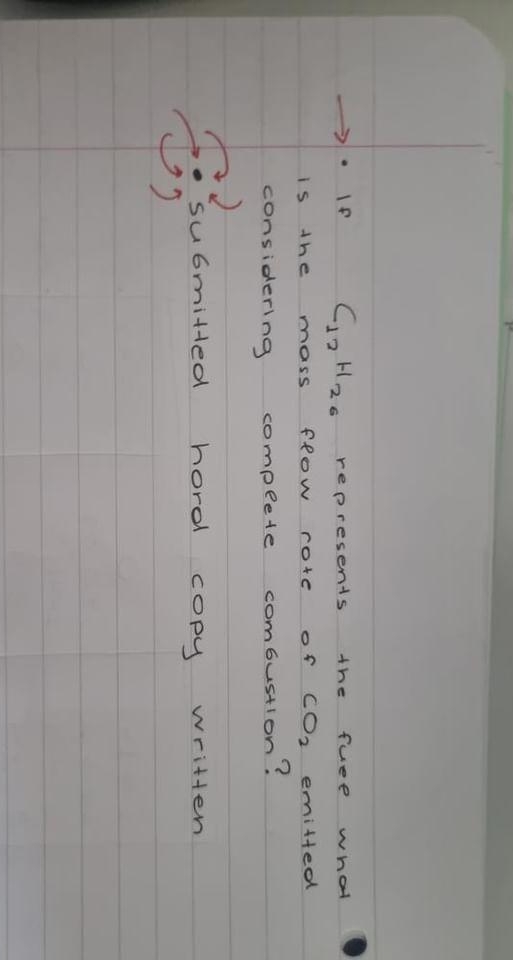 • If C₁₂H₂₆ represents the fuel what
is the mass flow rate of CO₂ emitted
considering complete combustion?
• submitted hard copy written